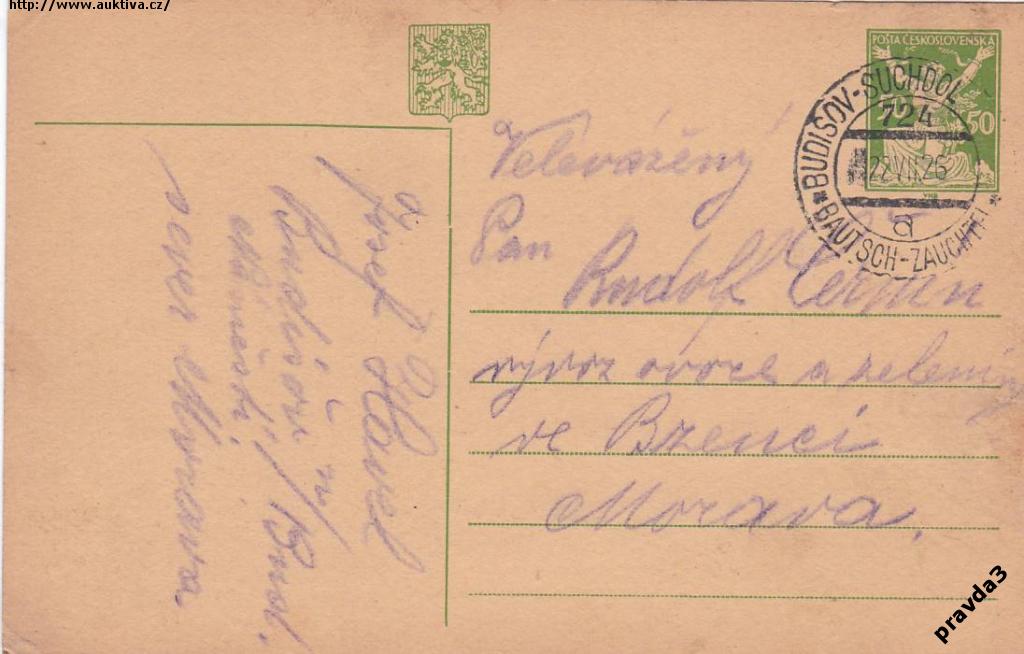 http://www.auktiva.cz/
POŠTA ČESKOSLOVENSKÁ
50
*BUDIŠOV-SUCHDOL*
724
22.VII.26
a
BAUTSCH-ZAUCHTEL
Velevážený
Pan
Rudolf
vývoz ovoce a zeleniny
ve Bzenci
Morava.
Josef Havel
Budišov n/Bud.
náměstí
sever Morava.
pravda3